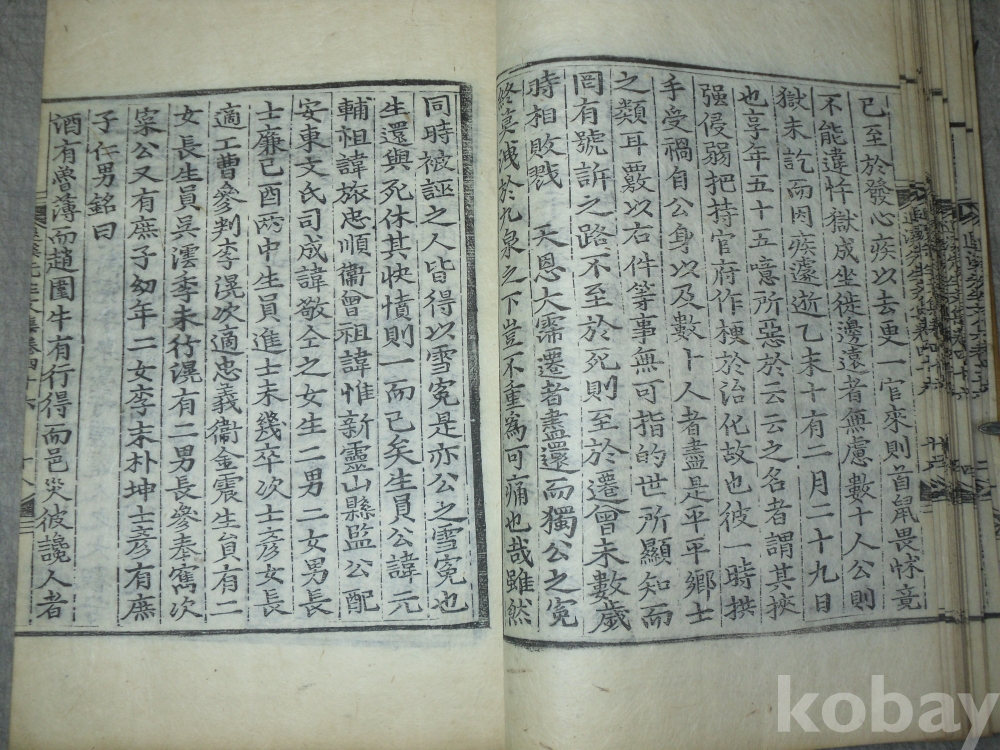 已至於發心疾以去更一 官來則首鼠畏怵竟
不能違忤獄成坐徙邊遠者無慮數十人公則
獄未訖而因疾遽逝乙未十有二月二十九日
也享年五十五噫所惡於云云之名者謂其挾
强侵弱把持官府作梗於治化故也彼一時拱
手受禍自公身以及數十人者盡是平平鄕士
之類耳覈以右件等事無可指的世所顯知而
罔有號訴之路不至於死則至於遷曾未數歲
時相敗戮 天恩大霈遷者盡還而獨公之寃
終莫洩於九泉之下豈不重爲可痛也哉雖然
同時被誣之人皆得以雪寃是亦公之雪寃也
生還與死休其快憤則一而已矣生員公諱元
輔祖諱旅忠順衞曾祖諱惟新靈山縣監公配
安東文氏司成諱敬仝之女生二男二女男長
士廉己酉兩中生員進士未幾卒次士彥女長
適工曹參判李滉次適忠義衞金震生員有二
女長生員吳濡季未行滉有二男長參奉寯次
寀公又有庶子幼年二女李末朴坤士彥有庶
子仁男銘曰
酒有魯薄而趙圍牛有行得而邑災彼讒人者
kobay